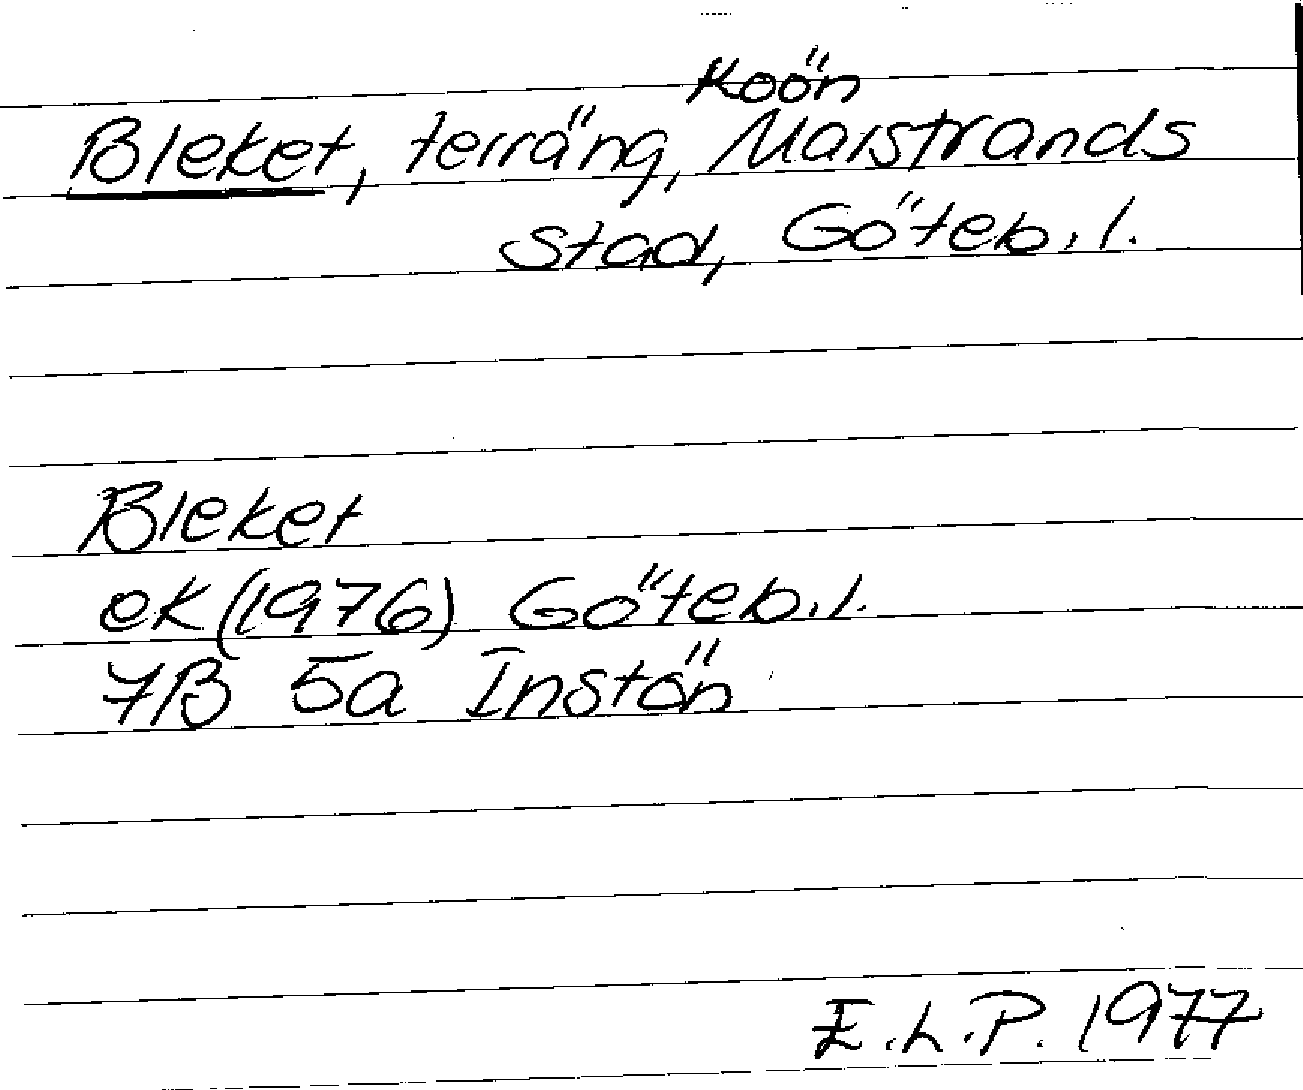 Koön
Bleket, terräng, Marstrands
stad, Göteb. l.
Bleket
ek (1976) Göteb. l.
7B 5a Instön
E.L.P. 1977